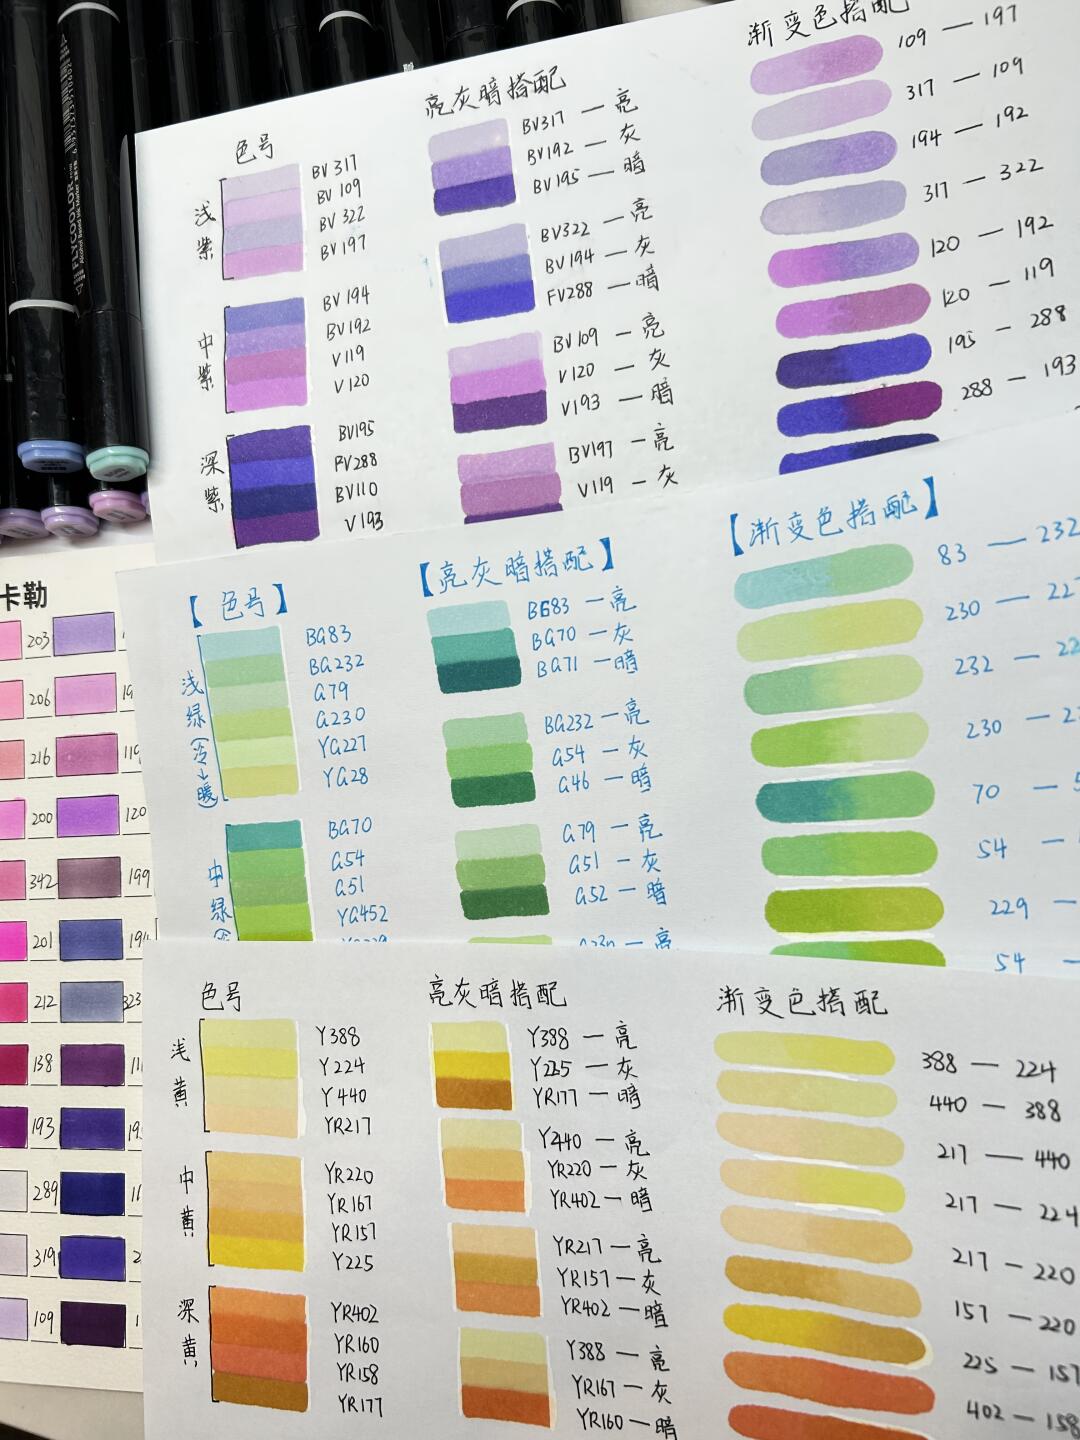 FLYCOOLOR
Alcohol Based Ink Marker
色号
浅紫
BV317
BV109
BV322
BV197
中紫
BV194
BV192
V119
V120
深紫
BV195
FV288
BV110
V193
亮灰暗搭配
BV317 — 亮
BV192 — 灰
BV195 — 暗
BV322 — 亮
BV194 — 灰
FV288 — 暗
BV109 — 亮
V120 — 灰
V193 — 暗
BV197 — 亮
V119 — 灰
渐变色搭配
109 — 197
317 — 109
194 — 192
317 — 322
120 — 192
120 — 119
195 — 288
288 — 193
【色号】
浅绿(冷→暖)
BG83
BG232
G79
G230
YG227
YG28
中绿
BG70
G54
G51
YG452
【亮灰暗搭配】
BG83 — 亮
BG70 — 灰
BG71 — 暗
BG232 — 亮
G54 — 灰
G46 — 暗
G79 — 亮
G51 — 灰
G52 — 暗
【渐变色搭配】
83 — 232
230 — 227
232 —
230 —
70 —
54 —
229 —
54 —
卡勒
203
206
216
200
342
201
212
138
193
289
319
109
119
120
199
194
色号
浅黄
Y388
Y224
Y440
YR217
中黄
YR220
YR167
YR157
Y225
深黄
YR402
YR160
YR158
YR177
亮灰暗搭配
Y388 — 亮
Y225 — 灰
YR177 — 暗
Y440 — 亮
YR220 — 灰
YR402 — 暗
YR217 — 亮
YR157 — 灰
YR402 — 暗
Y388 — 亮
YR167 — 灰
YR160 — 暗
渐变色搭配
388 — 224
440 — 388
217 — 440
217 — 224
217 — 220
157 — 220
225 — 157
402 — 158